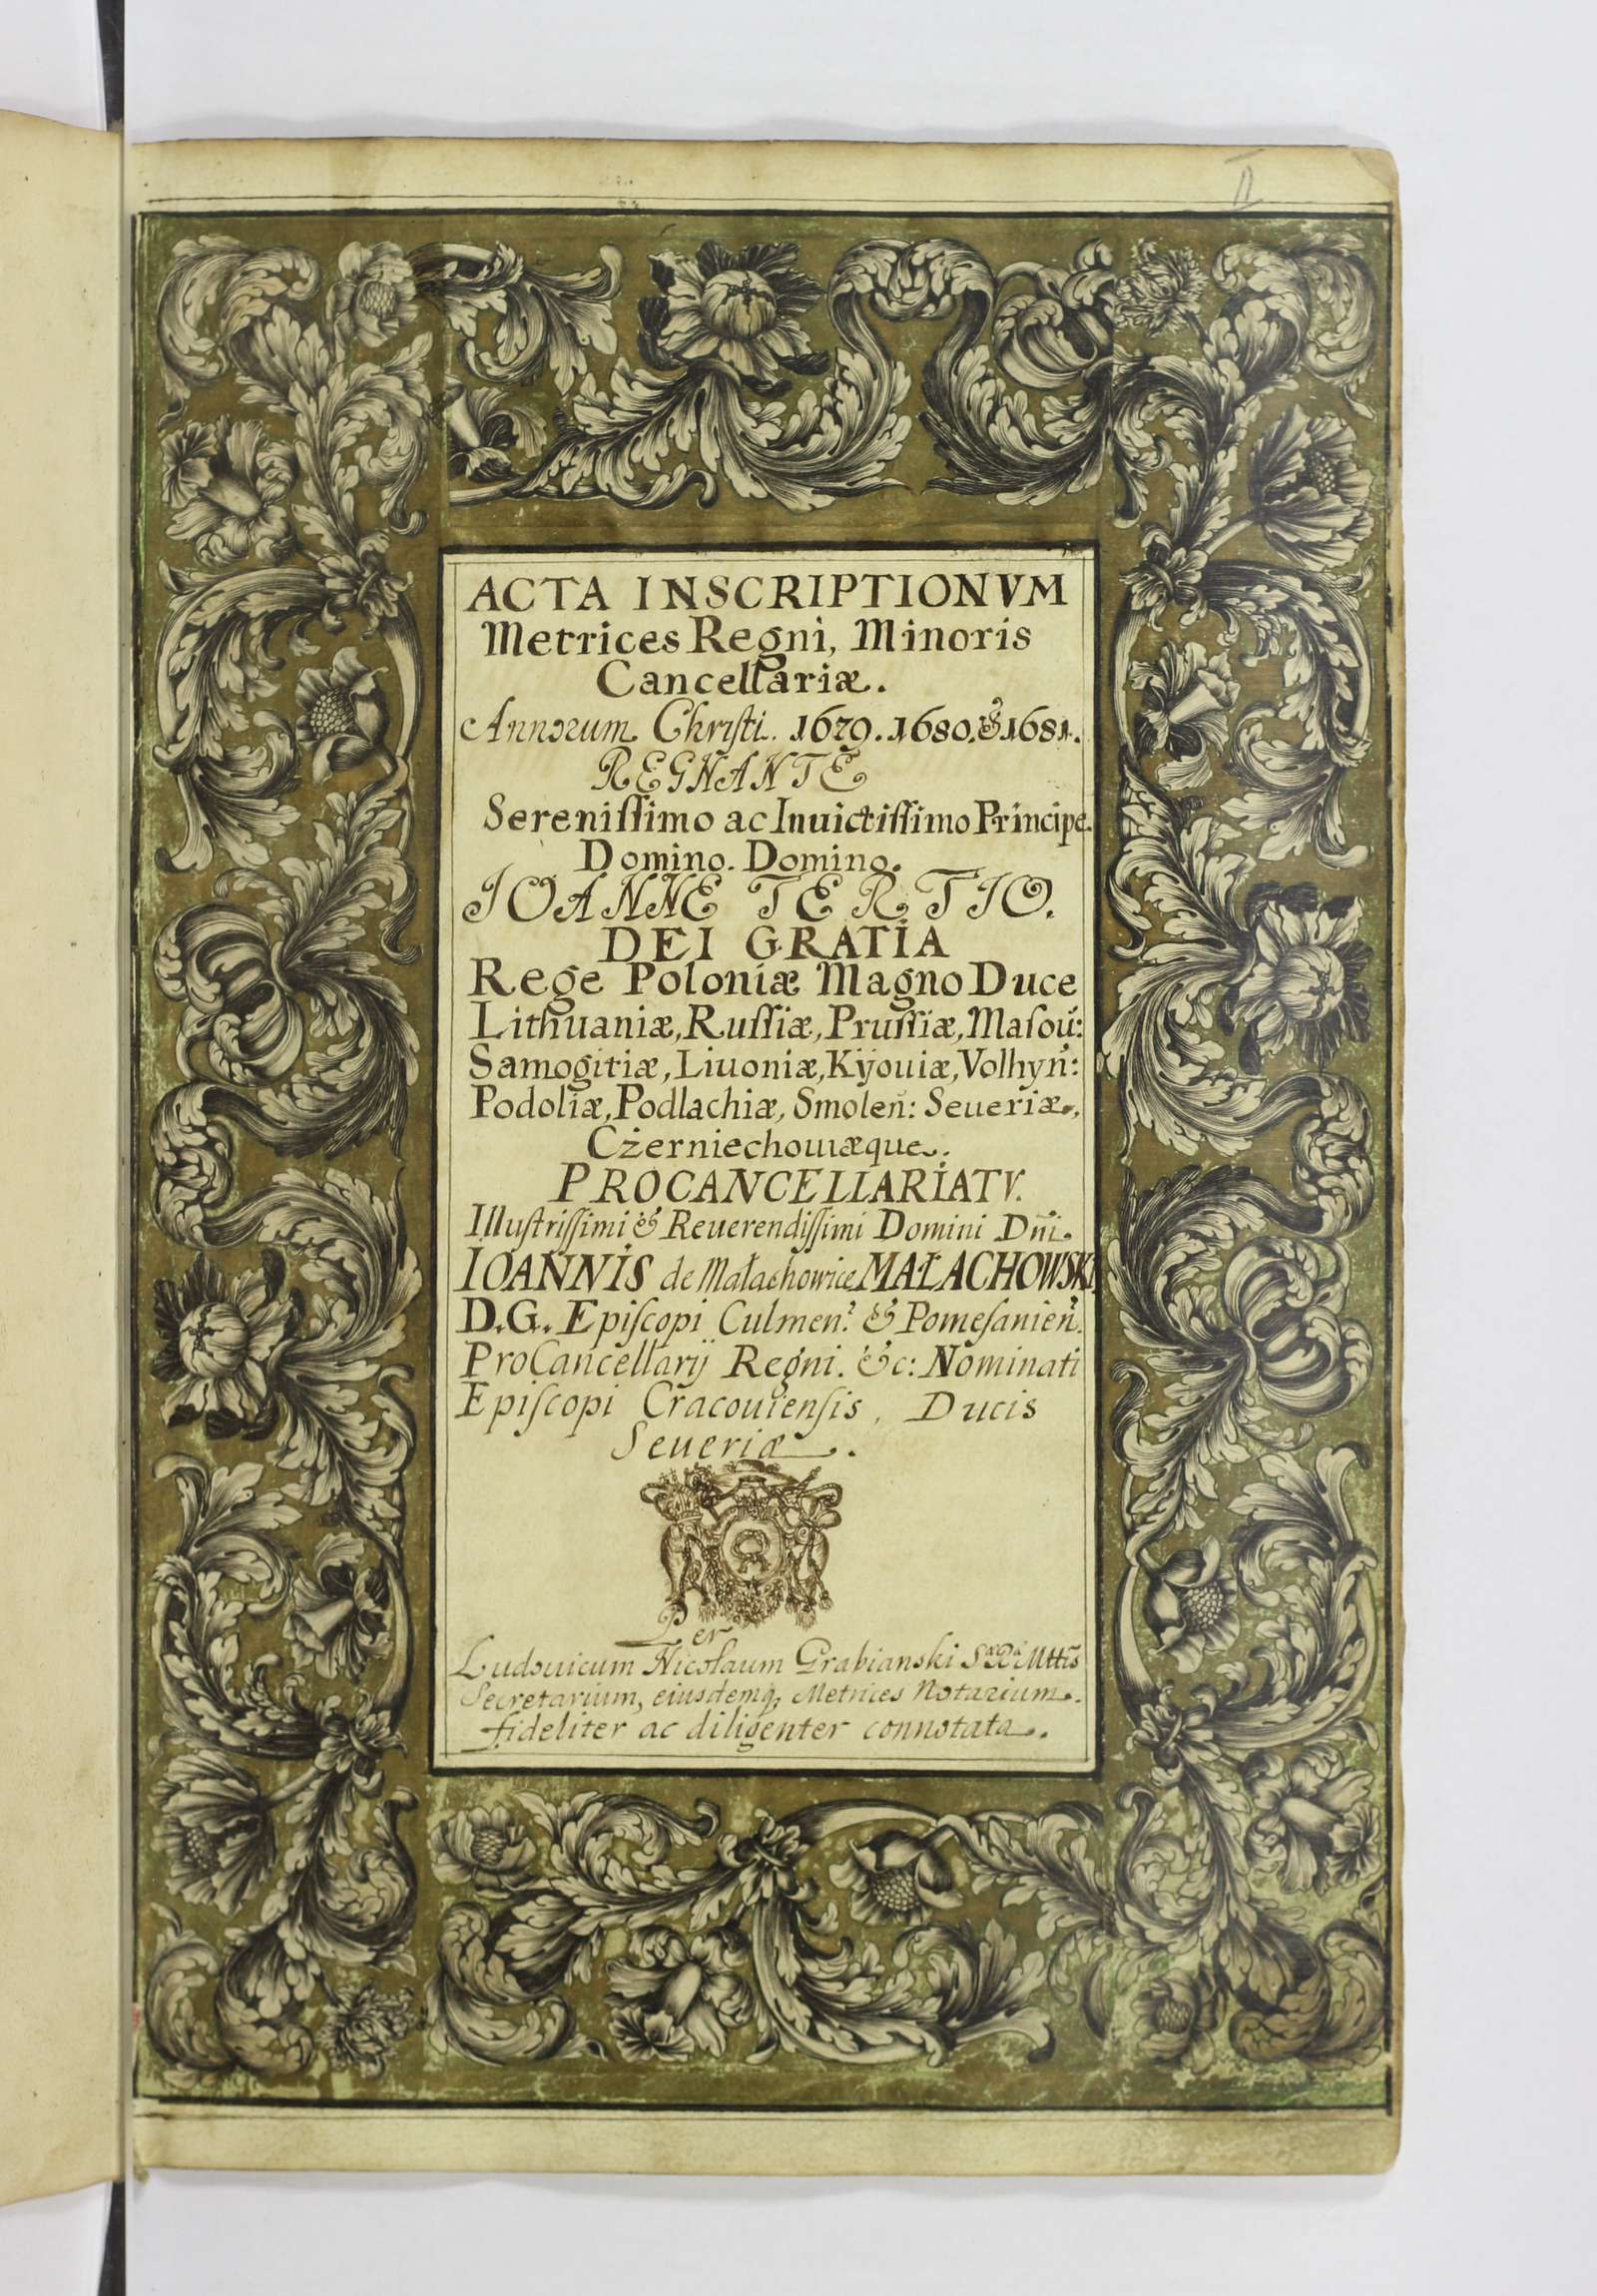 II
ACTA INSCRIPTIONVM
Metrices Regni, Minoris
Cancellariæ.
Annorum Christi. 1679. 1680. & 1681.
REGNANTE
Sereniſſimo ac Inuictiſſimo Principe.
Domino. Domino.
IOANNE TERTIO.
DEI GRATIA
Rege Poloniæ Magno Duce
Lithuaniæ, Ruſſiæ, Pruſſiæ, Maſou:
Samogitiæ, Liuoniæ, Kÿouiæ, Volhyn̄:
Podoliæ, Podlachiæ, Smolen̄: Seueriæ,
Cżerniechouiæque.
PROCANCELLARIATV.
Illuſtriſſimi & Reuerendiſſimi Domini Dn̄i.
IOANNIS de Małachowice MAŁACHOWSKI.
D.G. Epiſcopi Culmen: & Pomeſanien̄.
ProCancellarÿ Regni. &c: Nominati
Epiſcopi Cracouienſis, Ducis
Seueriæ.
Per
Ludouicum Nicolaum Grabianski S. R. Mttis
Secretarium, eiusdemq, Metrices Notarium.
fideliter ac diligenter connotata.